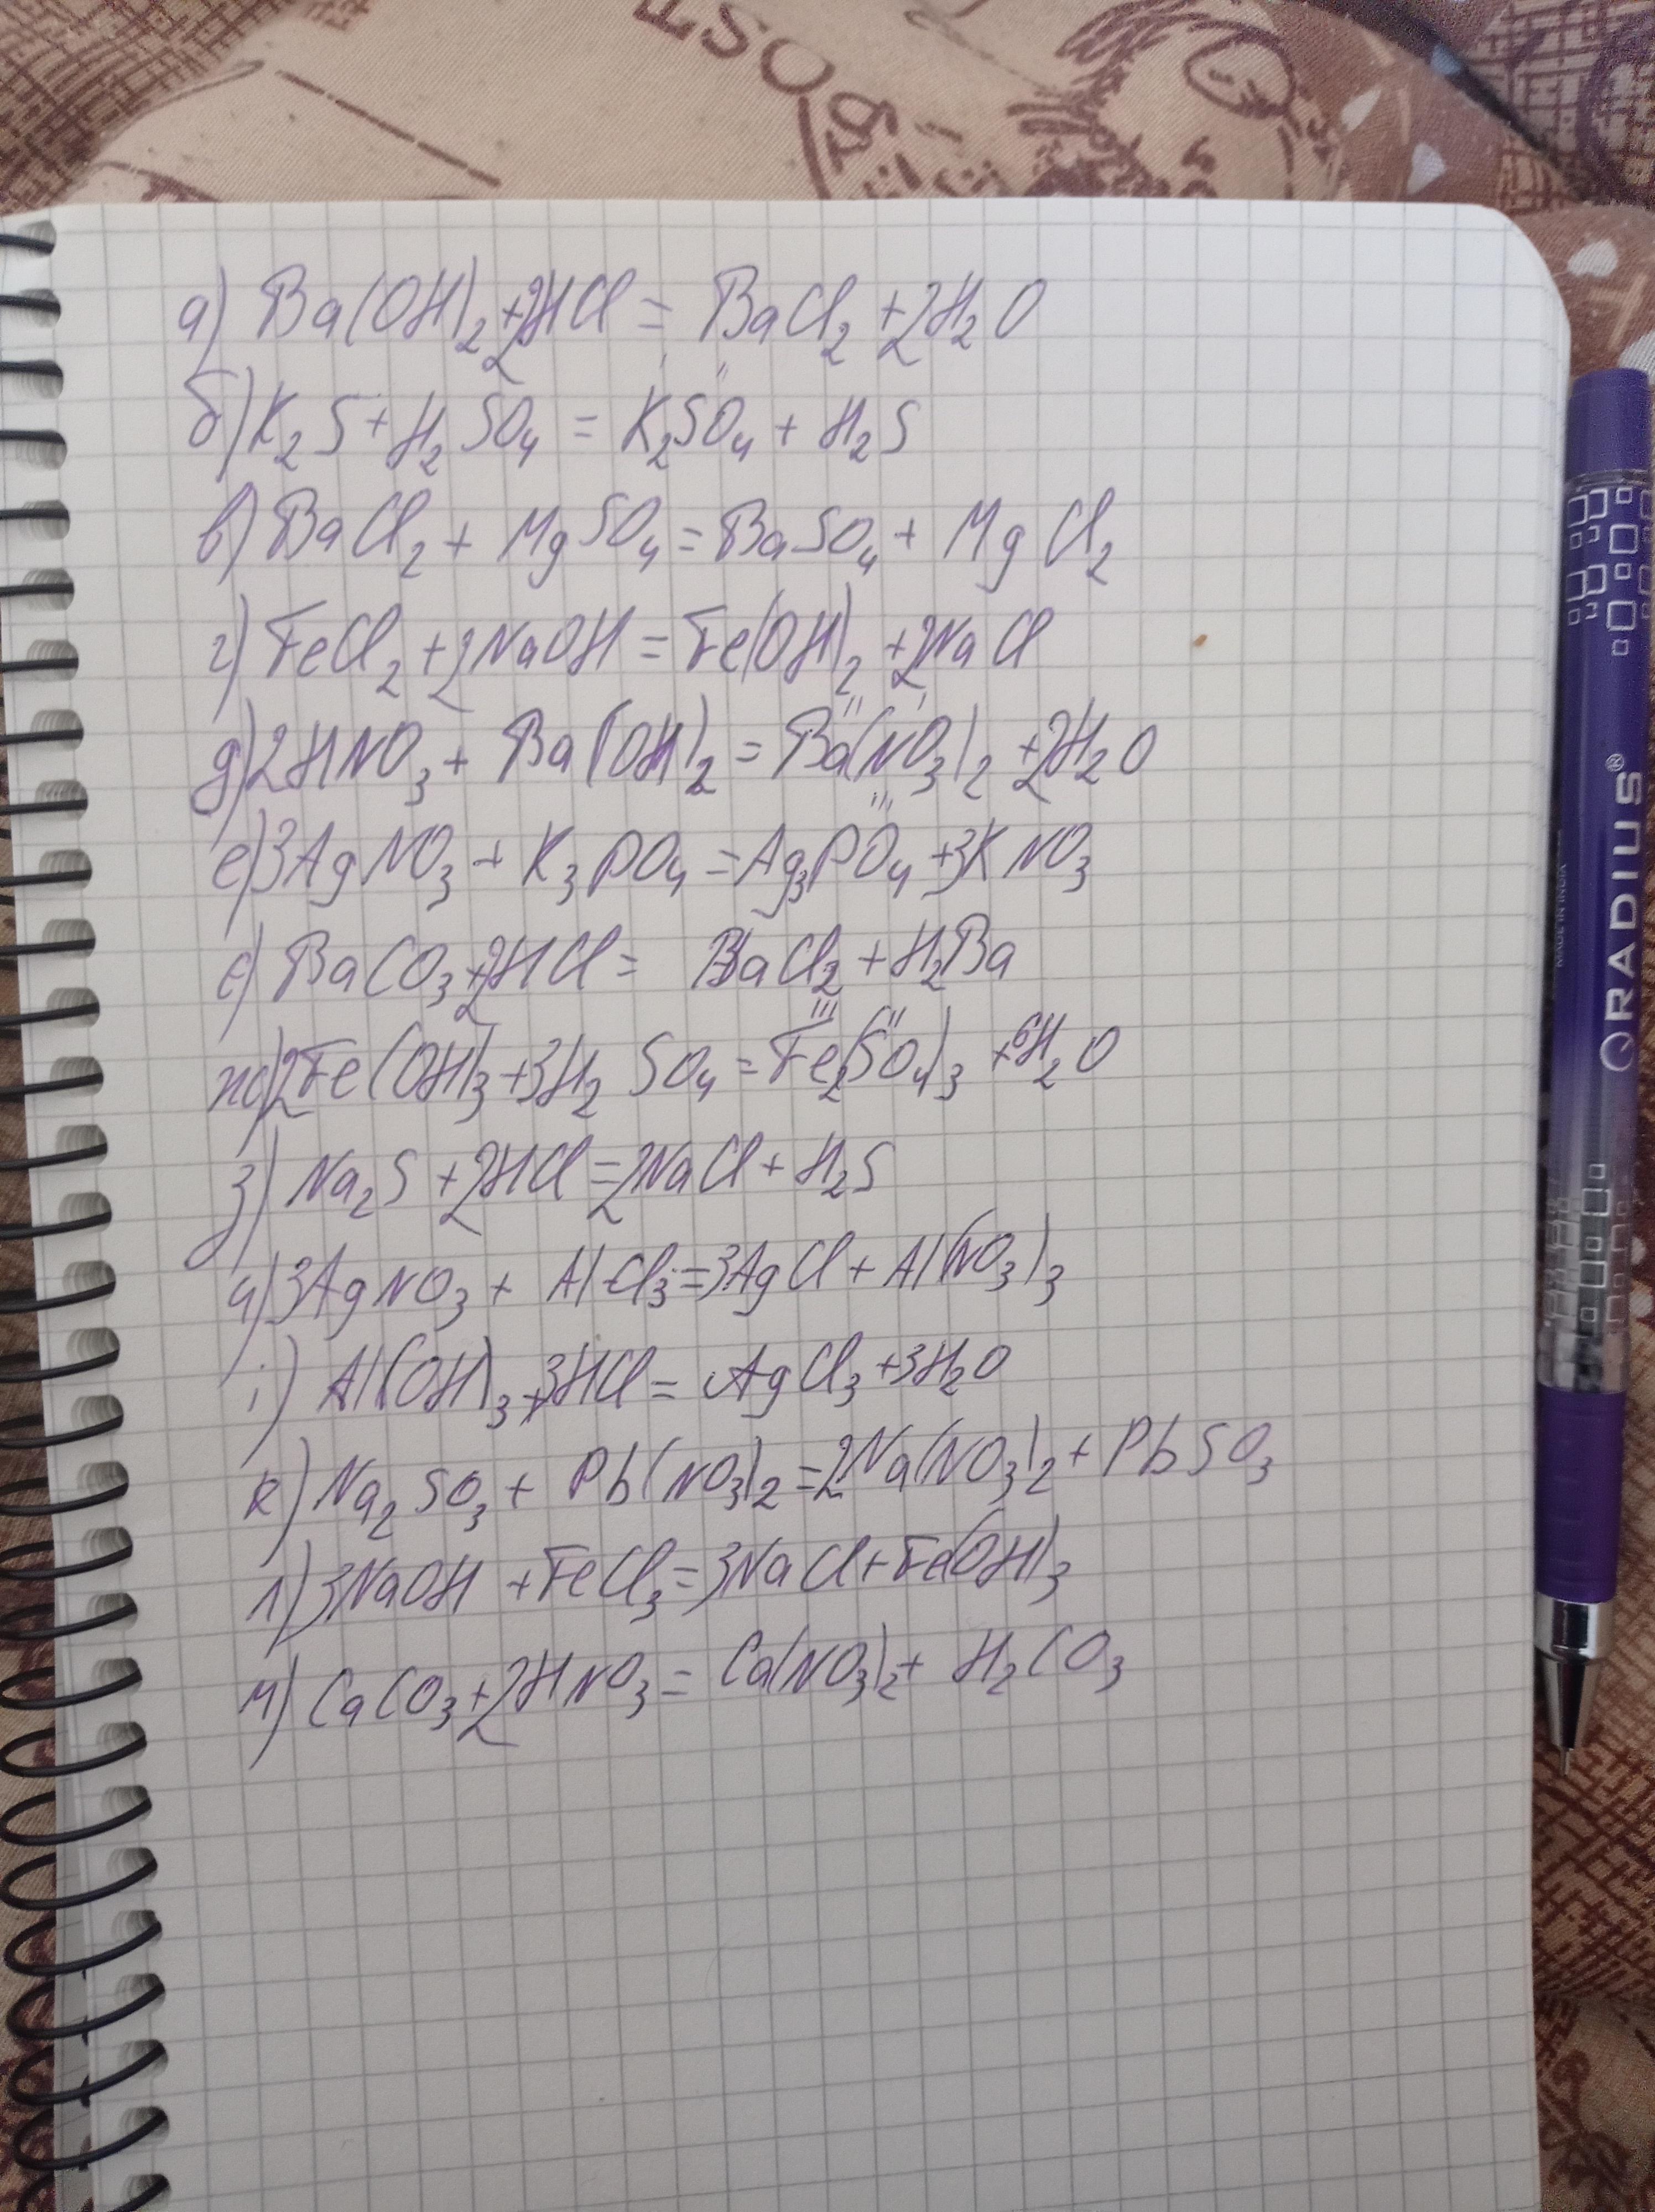 а) Ba(OH)₂+2HCl = BaCl₂+2H₂O
б) K₂S+H₂SO₄ = K₂SO₄ + H₂S
в) BaCl₂ + MgSO₄ = BaSO₄ + MgCl₂
г) FeCl₂ +2NaOH = Fe(OH)₂ +2NaCl
д) 2HNO₃ + Ba(OH)₂ = Ba(NO₃)₂ +2H₂O
е) 3AgNO₃ + K₃PO₄ = Ag₃PO₄ +3KNO₃
є) BaCO₃+2HCl = BaCl₂ + H₂Ba
ж) 2Fe(OH)₃+3H₂SO₄ = Fe₂(SO₄)₃ +6H₂O
з) Na₂S +2HCl =2NaCl + H₂S
и) 3AgNO₃ + AlCl₃ =3AgCl + Al(NO₃)₃
і) Al(OH)₃+3HCl = AgCl₃ +3H₂O
к) Na₂SO₃ + Pb(NO₃)₂ =2Na(NO₃)₂ + PbSO₃
л) 3NaOH + FeCl₃ =3NaCl + Fe(OH)₃
м) CaCO₃ +2HNO₃ = Ca(NO₃)₂ + H₂CO₃
RADIUS®
MADE IN INDIA